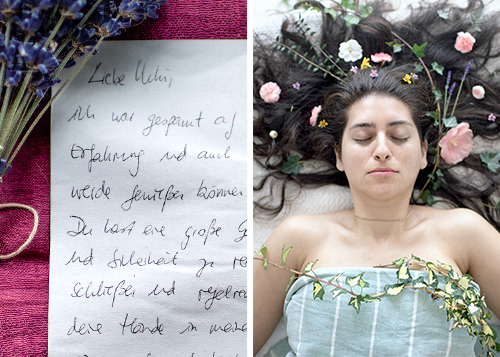 Liebe Uschi,
ich war gespannt auf
Erfahrung und auch
werde genießen können
Du hast eine große G
und Sicherheit zu
schließen und
deine Hände in meine